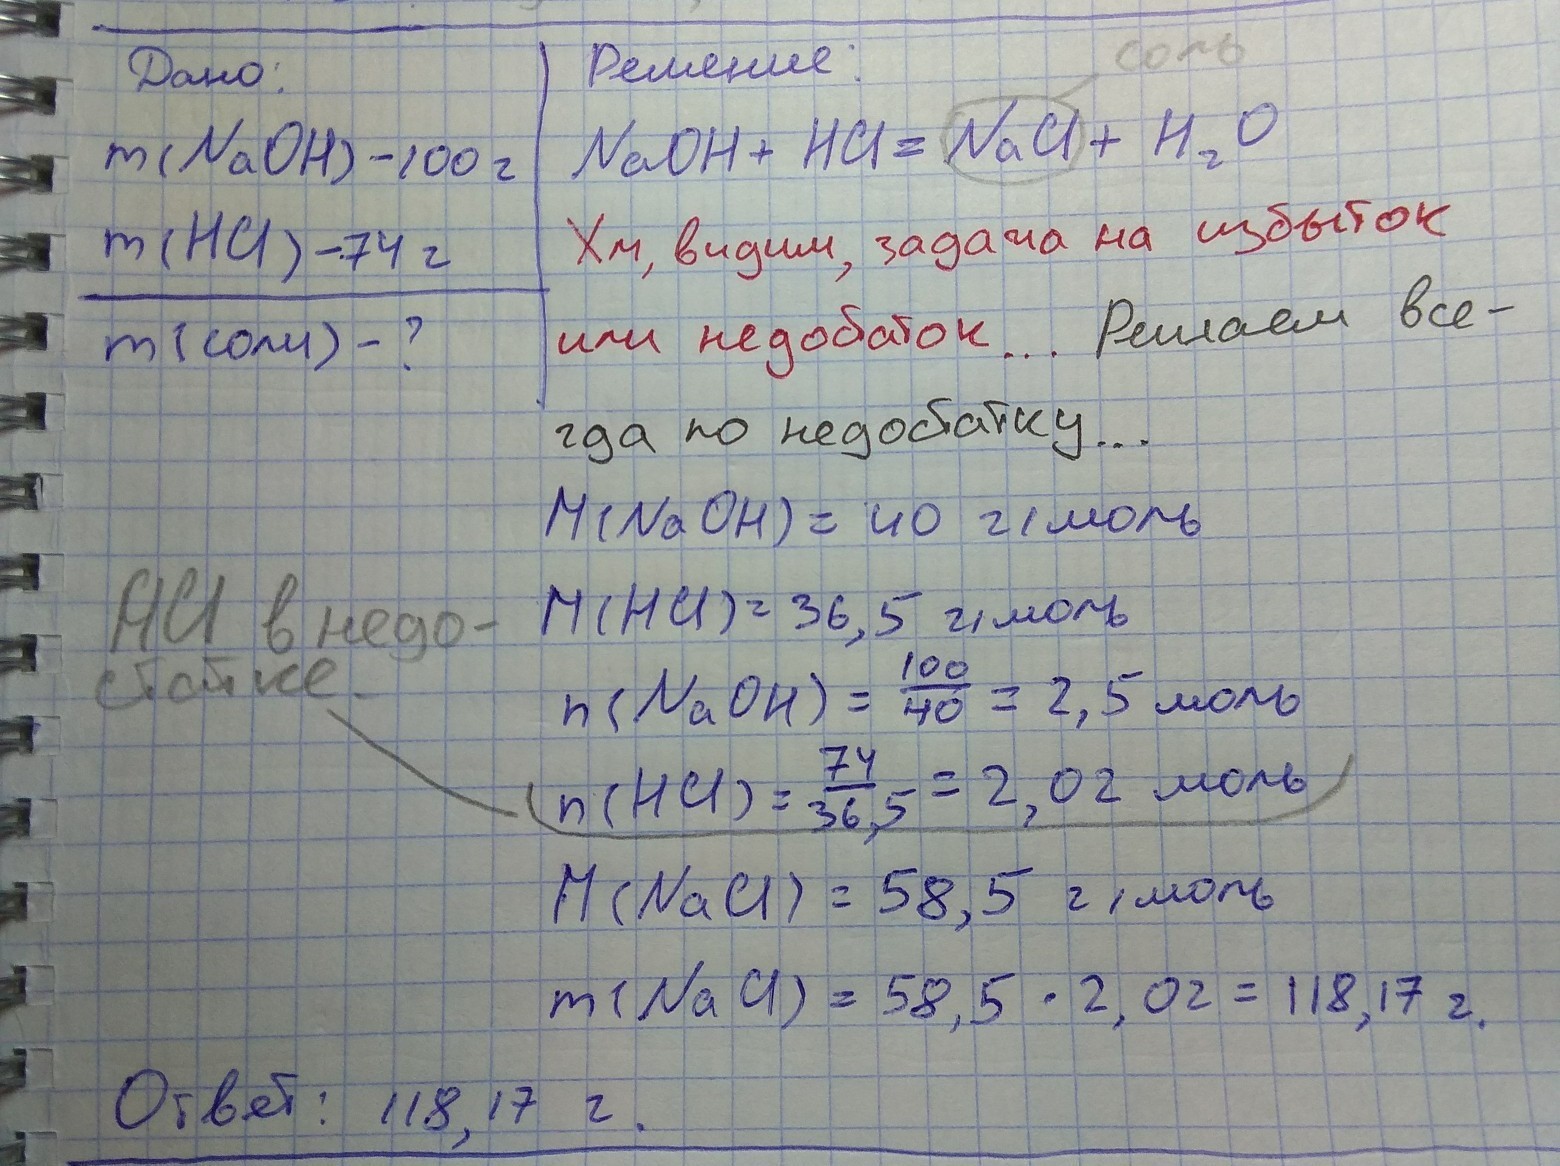 Дано:
m(NaOH) - 100 г
m(HCl) - 74 г
m(соли) - ?
Решение:
соль
NaOH + HCl = NaCl + H₂O
Хм, видим, задача на избыток
или недобаток... Решаем все-
гда по недобатку...
M(NaOH) = 40 г/моль
M(HCl) = 36,5 г/моль
HCl в недо-
статке.
n(NaOH) = 100/40 = 2,5 моль
n(HCl) = 74/36,5 = 2,02 моль
M(NaCl) = 58,5 г/моль
m(NaCl) = 58,5 · 2,02 = 118,17 г.
Ответ: 118,17 г.